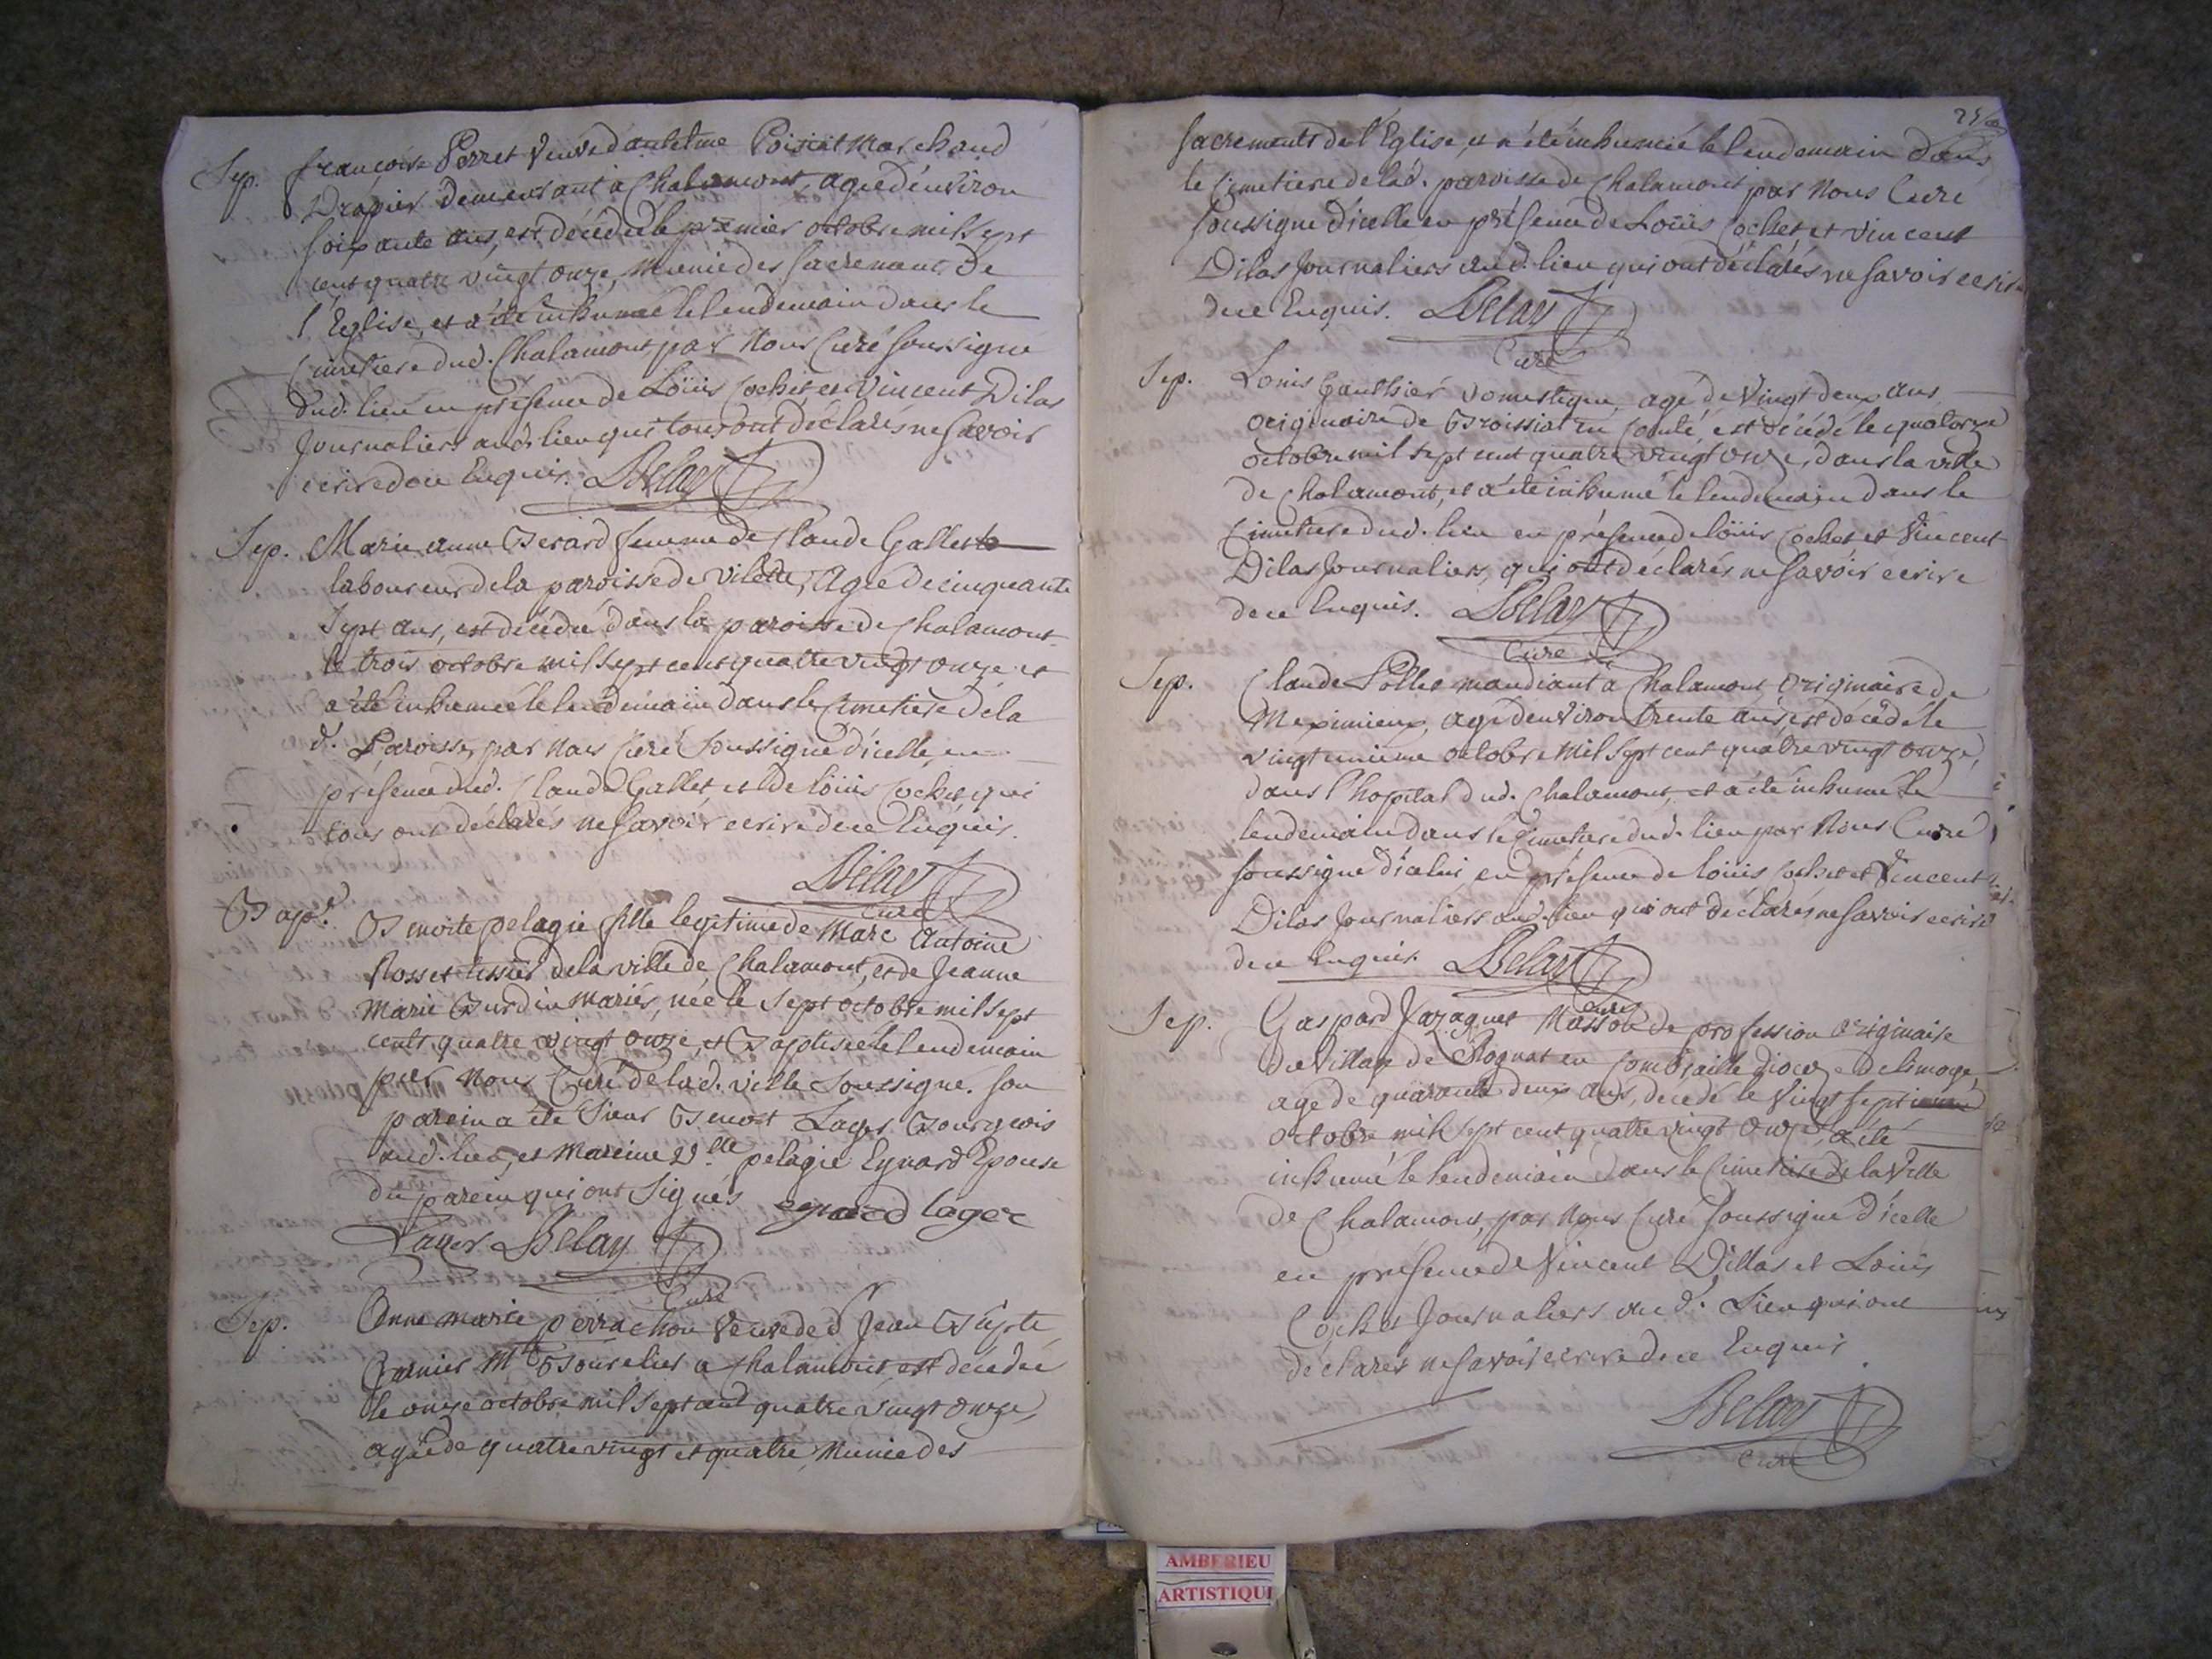 Sep. françoise Perret Veuve d'antelme Poisiat Marchand
Drapier demeurant a Chalamont, agée d'environ
soixante ans, est décédée le premier octobre mil sept
cent quatre vingt onze, munie des sacremens de
l'Eglise, et a été inhumée le lendemain dans le
Cimetiere dud. Chalamont par Nous Curé soussigné
dud. lieu en présence de Loüis Cochet et Vincent Dilas
Journaliers aud. lieu qui tous ont déclarés ne savoir
ecrire de ce Enquis. Belay
Sep. Marie anne Berard femme de Claude Gallet
laboureur de la paroisse de Vilette, Agée de cinquante
Sept ans, est décédée dans la paroisse de Chalamont
le trois octobre mil sept cent quatre vingt onze et
a été inhumée le lendemain dans le Cimetiere de la
d. Paroisse, par Nous Curé Soussigné d'icelle, en
présence dud. Claude Gallet et de loüis Cochet, qui
tous ont déclarés ne savoir ecrire de ce Enquis.
Belay
Curé
Bap. Benoite pelagie fille legitime de Marc Antoine
Rosset tissier de la ville de Chalamont, et de Jeanne
Marie Burdin mariés, née le Sept octobre mil sept
cents quatre vingt onze, et Baptisée le lendemain
par Nous Curé de lad. ville Soussigné. son
parein a été Sieur Benoit Lager Bourgeois
aud. lieu, et Mareine Dlle pelagie Eynard Epouse
du parein qui ont Signés eynard lager
Lager Belay
Curé
Sep. Anne marie perrachon Veuve de d Jean Bapte
Garnier Mtre Bourelier a Chalamont, est décédée
le onze octobre mil sept cent quatre vingt onze,
agée de quatre vingt et quatre, Munie des
sacrements de l'Eglise, et a été inhumée le lendemain dans
le Cimetiere de lad. paroisse de Chalamont par Nous Curé
soussigné d'icelle en présence de Loüis Cochet et Vincent
Dilas Journaliers aud. lieu qui ont déclarés ne savoir ecrire
de ce Enquis. Belay
Curé
Sep. Louis Gauthier Domestique, agé de Vingt deux ans
originaire de Broissiat en Comté, est décédé le quatorze
octobre mil sept cent quatre vingt onze, dans la ville
de Chalamont, et a été inhumé le lendemain dans le
Cimetiere dud. lieu en présence de loüis Cochet et Vincent
Dilas Journaliers, qui ont déclarés ne savoir ecrire
de ce Enquis. Belay
Curé
Sep. Claude Pollet mandiant a Chalamont Originaire de
Meximieux, agé d'environ trente ans, est décédé le
vingt unieme octobre mil sept cent quatre vingt onze,
dans l'hopital dud. Chalamont, et a été inhumé le
lendemain dans le Cimetiere dud. lieu par Nous Curé
soussigné d'icelui en présence de loüis Cochet et Vincent
Dilas Journaliers aud. lieu, qui ont déclarés ne savoir ecrire
de ce Enquis. Belay
Curé
Sep. Gaspard Jazaguet Masson de profession originaire
du Village de Rognat en Combraille dioceze de limoge,
agé de quarante deux ans, decedé le Vingt sept
octobre mil sept cent quatre vingt onze, a été
inhumé le lendemain dans le Cimetiere de la Ville
de Chalamont, par Nous Curé soussigné d'icelle
en présence de Vincent Dillas et Loüis
Cochet Journaliers aud. Lieu qui ont
déclarés ne savoir ecrire de ce Enquis
Belay
Curé
AMBERIEU
ARTISTIQUE